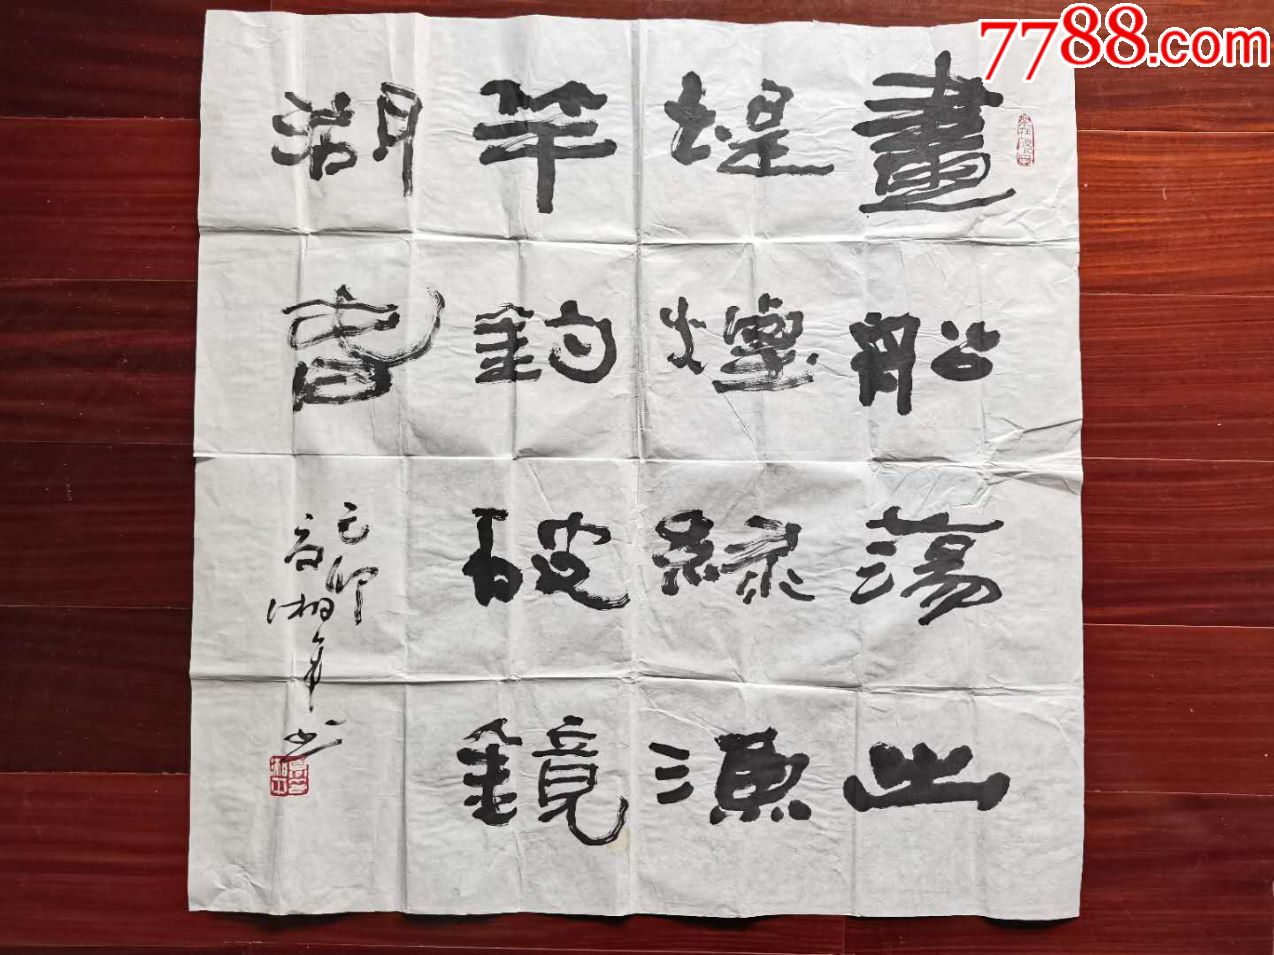 7788.com
畫船蕩出
堤煙綠漁
竿釣破鏡
湖春
己卯
高湘年书